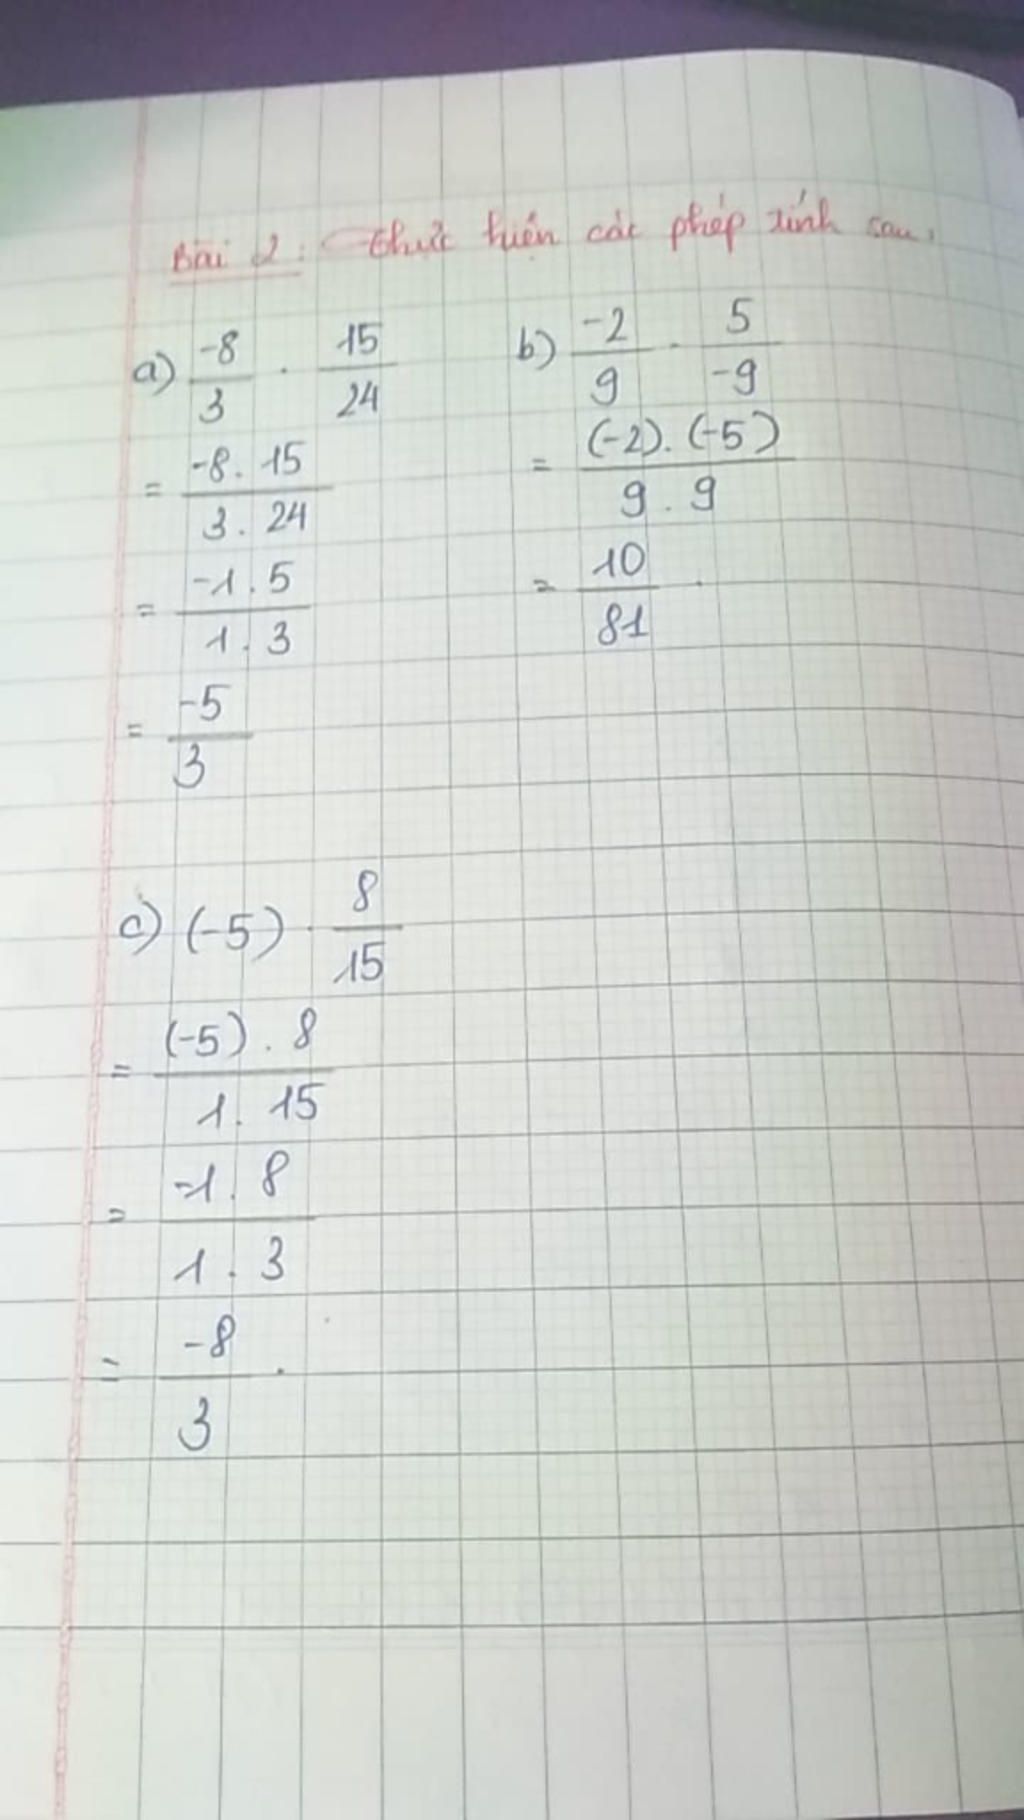 Bài 2: Thực hiện các phép tính sau.
a) -8/3 . 15/24
= -8. 15/3. 24
= -1. 5/1. 3
= -5/3
b) -2/9 . 5/-9
= (-2). (-5)/9. 9
= 10/81.
c) (-5) . 8/15
= (-5). 8/1. 15
= -1. 8/1. 3
= -8/3.